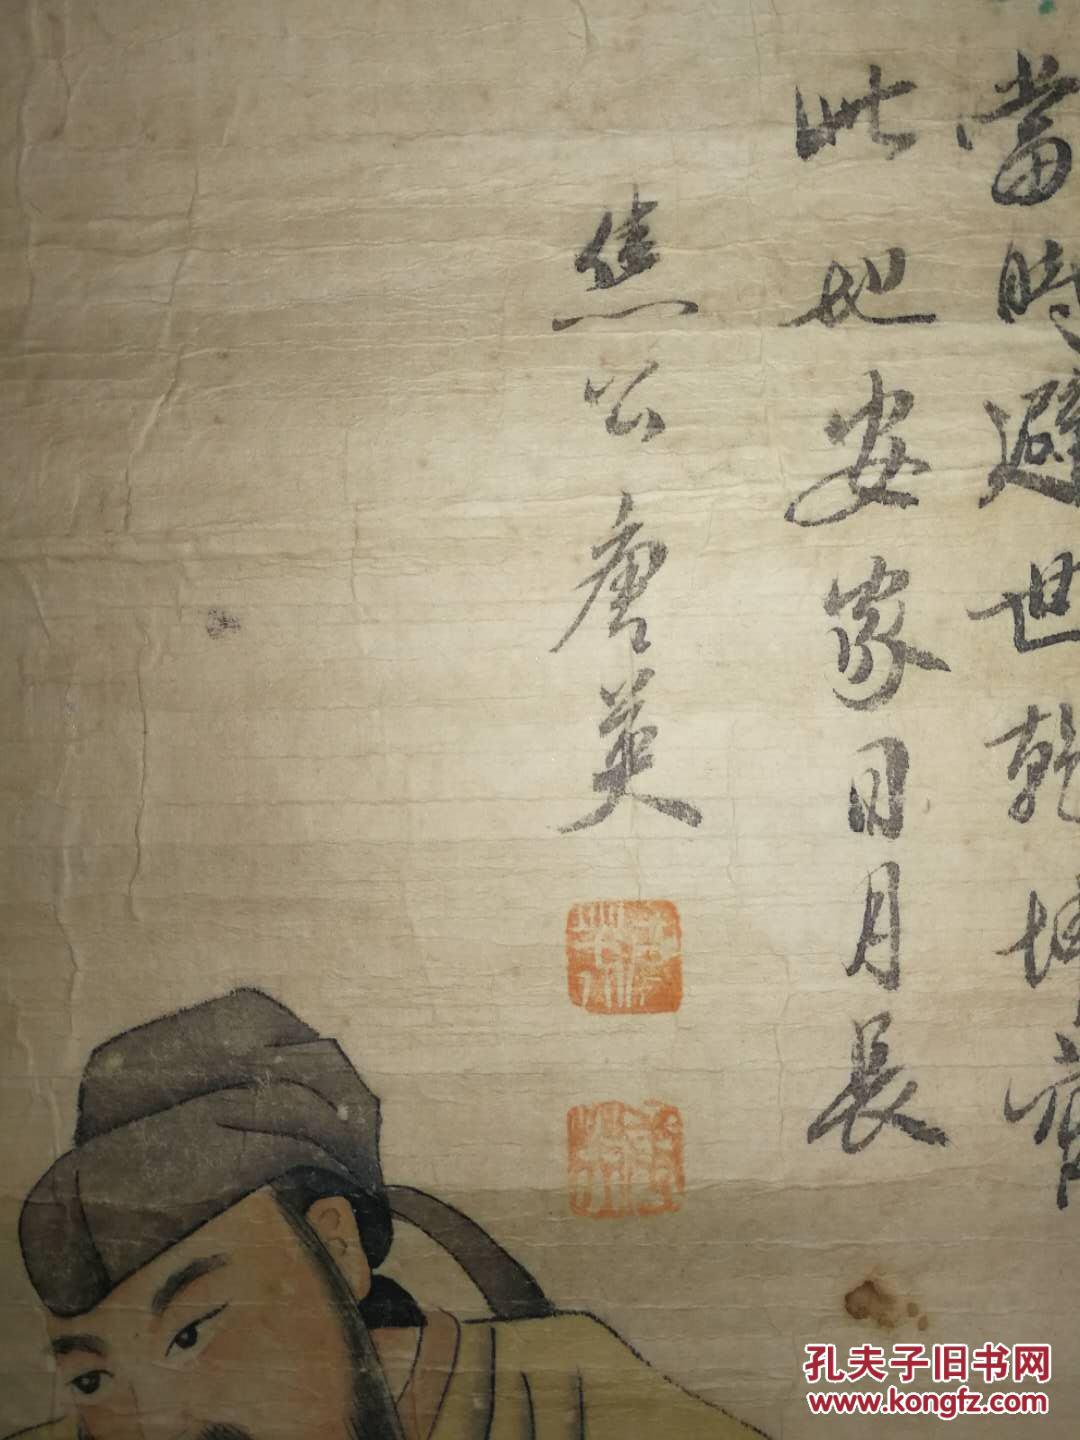 當時避世乾坤窄
此地安家日月長
焦公唐英
孔夫子旧书网
www.kongfz.com